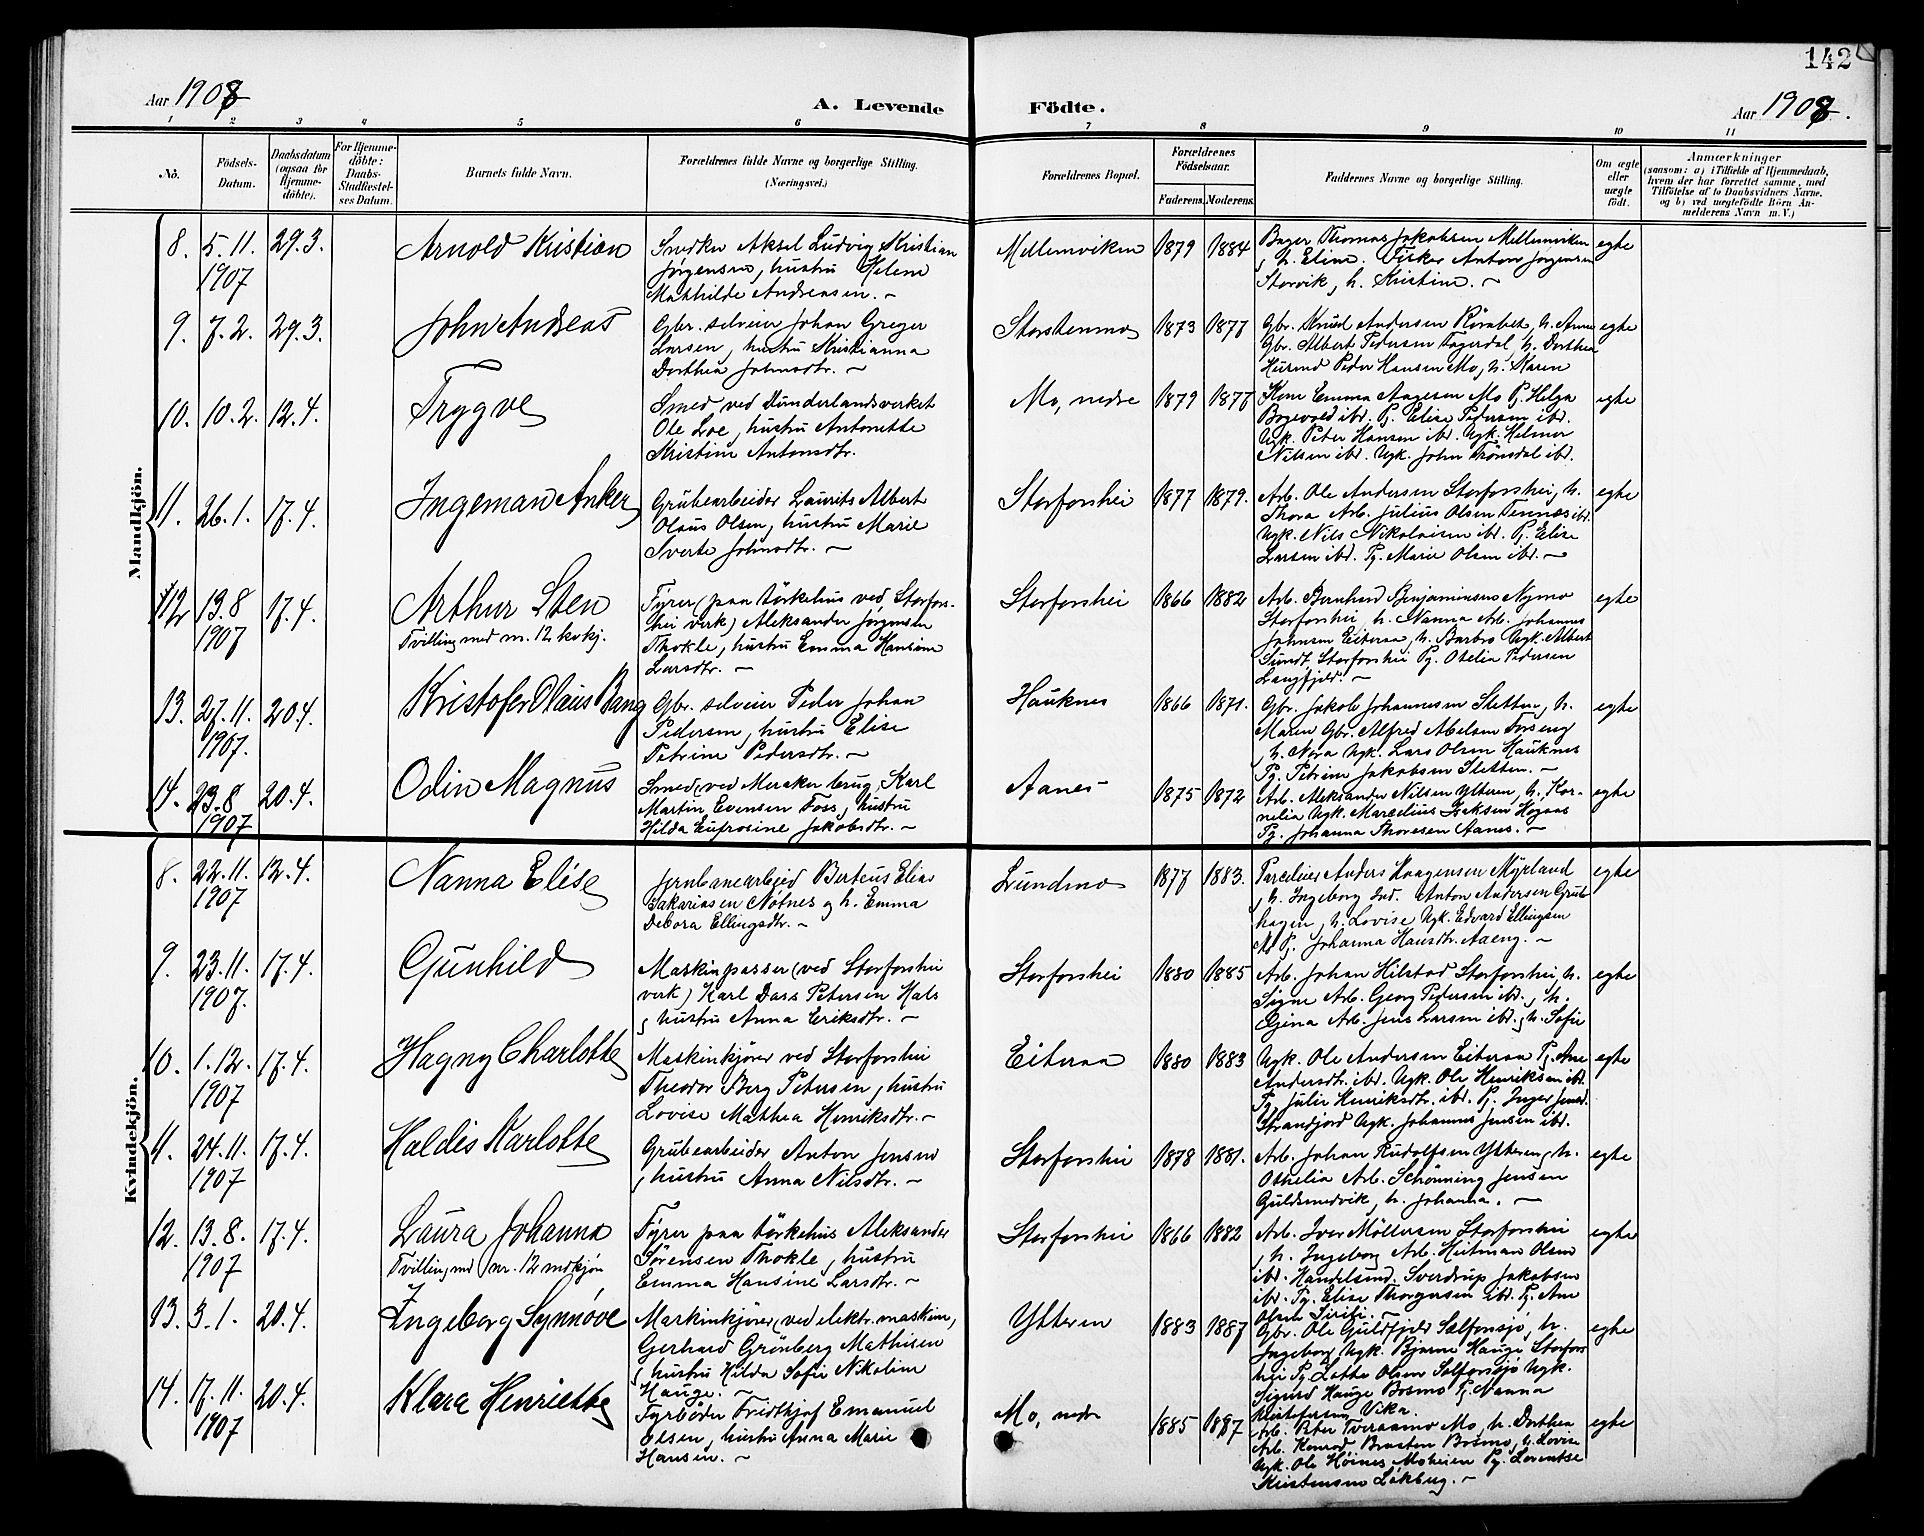 142
Aar 1908
A. Levende Födte.
Aar 1908.
1 2 3 4 5 6 7 8 9 10 11
No.
Födsels-
Datum.
Daabsdatum
(ogsaa for
Hjemme-
döbte).
For Hjemme-
döbte:
Daabs-
Stadfæstel-
ses Datum.
Barnets fulde Navn.
Forældrenes fulde Navne og borgerlige Stilling.
(Næringsvei.)
Forældrenes Bopæl.
Forældrenes
Födselsaar.
Faderens. Moderens.
Faddernes Navne og borgerlige Stilling.
Om ægte
eller
uægte
födt.
Anmærkninger
(saasom: a) i Tilfælde af Hjemmedaab,
hvem der har forrettet samme, med
Tilföielse af to Daabsvidners Navne,
og b) ved uægtefödte Börn An-
melderens Navn m. V.)
Mandkjön.
8. 5.11. 1907 29.3. Arnold Kristian
Snedker Aksel Ludvig Kristian
Jörgensen, hustru Helene
Mathilde Andreasen.
Mellemviken 1879 1884
Bager Thomas Jakobsen Mellemviken
, h. Eline. Fisker Anton Jörgensen
Storvik, h. Kristine.
egte
9. 7.2. 29.3. John Andreas
Gbr. selveier Johan Greger
Larsen, hustru Kristianna
Dorthea Johnsdtr.
Storstenmo 1873 1877
Gbr. Knud Andersen, h. Anne
Gbr. Albert Pedersen Fagerdal h. Dorthea
Husmd Peder Hansen Mo, h. Karen
egte
10. 10.2. 12.4. Trygve
Smed ved Dunderlandsverket
Ole Loe, hustru Antonette
Kristine Antonsdtr.
Mo, nedre 1879 1877
Kone Emma Aagesen Mo Pj. Helga
ibd. Pj. Elise Pedersen ibd.
Ugk. Peter Hansen ibd. Ugk. Helmer
Nilsen ibd. Ugk. John Trönsdal ibd.
egte
11. 26.1. 17.4. Ingeman Anker
Grubearbeider Laurits Albert
Olaus Olsen, hustru Marie
Sverte Johnsdtr.
Storforshei 1877 1879.
Arb. Ole Andersen Storforshei, h.
Thora Arb. Julius Olsen Tennæs ibd.
Ugk. Nils Nikolaisen ibd. Pj. Elise
Larsen ibd. Pj. Marie Olsen ibd.
egte
12 13.8 1907 17.4. Arthur Sten
Tvilling med nr. 12 kvkj.
Fyrer (paa törkehus ved Storfors-
hei verk) Aleksander Jörgensen
Thokle, hustru Emma Hansine
Larsdtr.
Storforshei 1866 1882
Arb. Bernhard Benjaminsen Nymo
Storforshei, h. Nanna Arb. Johannes
Johnsen Eiteraa, h. Barbro Ugk. Albert
Sundt, Storforshei Pj. Othelia Pedersen
Langfjeld.
egte
13. 27.11. 1907. 20.4. Kristofer Olaus Bang
Gbr. selveier Peder Johan
Pedersen, hustru Elise
Petrine Pedersdtr.
Hauknes 1866 1871.
Gbr. Jakob Johannesen Sletten, h.
Maren Gbr. Alfred Abelsen Forseng
, h. Nora Ugk. Lars Olsen Hauknes
Pj. Petrine Jakobsen Sletten.
egte
14. 23.8 1907 20.4. Odin Magnus
Smed (ved Meraker brug) Karl
Martin Evensen Foss, hustru
Hilda Eufrosine Jakobsdtr.
Aanes 1875 1872
Arb. Aleksander Nilsen Ytteren, h. Kor-
nelia Ugk. Marcelius Isaksen Hogaas
Pj. Johanna Thoresen Aanes.
egte
Kvindekjön.
8. 22.11. 1907 12.4. Nanna Elise
Jernbanearbejd Berteus Elias
Sakariasen Nötnes og h. Emma
Debora Ellingsdtr.
Lundmo 1877 1883.
Parcelleier Anders Haagensen Myrland
, h. Ingeborg Ind. Anton Andersen Grube
hagen, h. Lovise, Ugk. Edvard Ellingsen
Pj. Johanna Hansdtr. Aaeng.
egte
9. 23.11. 1907. 17.4. Gunhild
Maskinpasser (ved Storforshei
verk) Karl Dass Petersen Hals
, hustru Anna Eriksdtr.
Storforshei 1880 1885
Arb. Johan Hilstad Storforshei, h.
Signe Arb. Georg Pedersen ibd., h.
Gjina Arb. Jens Larsen ibd., h. Sofie
egte
10. 1.12. 1907 17.4. Hagny Charlotte
Maskinkjörer ved Storforshei
Theodor Berg Petersen, hustru
Lovise Mathea Henriksdtr.
Eiteraa 1880 1883
Ugk. Ole Andersen Eiteraa Pj. Ane
Andersdtr. ibd. Ugk. Ole Henriksen ibd.
Pj. Julie Henriksdtr. ibd. Pj. Inger Jensd.
Strandjord Ugk. Johannes Jensen ibd.
egte
11. 24.11. 1907 17.4. Haldis Karlotte
Grubearbeider Anton Jensen
, hustru Anna Nilsdtr.
Storforshei 1878 1881.
Arb. Johan Rudolfsen Ytteren, h.
Othelia Arb. Schönning Jensen
Guldsmedvik, h. Johanna.
egte
12. 13.8. 1907 17.4. Laura Johanna
Tvilling md nr. 12 mdkjön
Fyrer paa törkehus Aleksander
Sörensen Thokle, hustru
Emma Hansine Larsdtr.
Storforshei 1866 1882
Arb. Iver Möllersen Storforshei
, h. Ingeborg Arb. Hitman Olsen
ibd. Handelsmd. Sverdrup Jakobsen
ibd. Pj. Elise Thorgersen ibd. Pj. Ane
Olsen
egte
13. 3.1. 20.4. Ingeborg Synnöve
Maskinkjörer (ved elektr. maskine)
Gerhard Grönberg Mathisen
, hustru Hilda Sofie Nikoline
Hauge.
Ytteren 1883 1887
Gbr. Ole Guldfjeld Sælfonsjö, h.
Ingeborg Ugk. Bjarne Hauge Storfors
hei Pj. Lotte Olsen Selforssjö Ugk.
Sigurd Hauge Bosmo Pj. Nanna
Kristofersen Vika.
egte
14. 17.11. 1907 20.4. Klara Henriette
Fyrböder Fridthjof Emanuel
Olsen, hustru Anna Marie
Hansen.
Mo, nedre 1885 1887
Arb. Peter Tverraamo Mo, h. Dorthea
Arb. Konrad Braaten Bosmo, h. Lovise
Ugk. Ole Höines Moheien Pj. Lorentse
Kristensen Lökberg.
egte